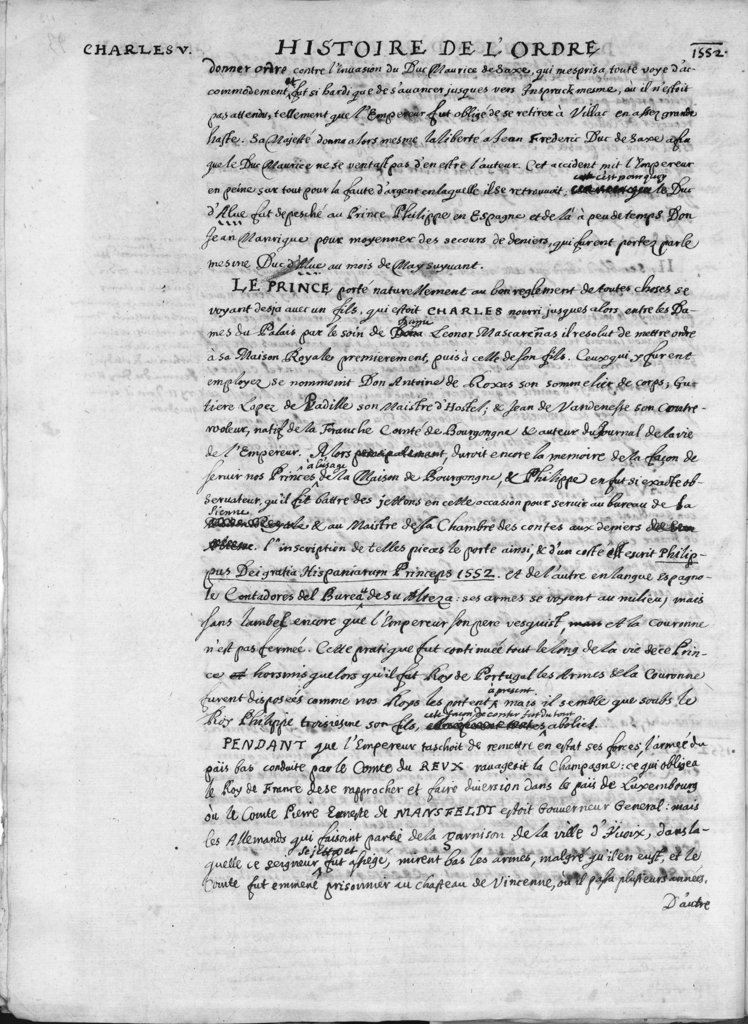 CHARLES V. HISTOIRE DE L'ORDRE 1552.
donner ordre contre l'invasion du Duc Maurice de Saxe, qui mesprisa toute voye d'ac-
commodement, et fut si hardi que de s'avancer jusques vers Inspruck mesme, où il n'estoit
pas attendu, tellement que l'Empereur fut obligé de se retirer à Villac en assez grande
haste. Sa Majesté donna alors mesme la liberté a Jean Frederic Duc de Saxe afin
que le Duc Maurice ne se ventast pas d'en estre l'auteur. Cet accident mit l'Empereur
en peine sur tout pour la faute d'argent en laquelle il se retrouvoit, c'est pourquoy le Duc
d'Alve fut depesché au Prince Philippe en Espagne et de là à peu de temps Don
Jean Manrique pour moyenner des secours de deniers, qui furent portez par le
mesme Duc d'Alve au mois de May suyvant.
LE PRINCE porté naturellement au bon reglement de toutes choses se
voyant desja avec un fils, qui estoit CHARLES nourri jusques alors entre les Da-
mes du Palais par le soin de Dame Leonor Mascareñas il resolut de mettre ordre
à sa Maison Royale premierement, puis à celle de son fils. Ceux qui y furent
employez se nommoint Don Antoine de Roxas son sommelier de corps; Gu-
tiere Lopez de Padille son Maistre d'Hostel; & Jean de Vandenesse son Contre-
rooleur, natif de la Franche Comté de Bourgongne & auteur du Journal de la vie
de l'Empereur. Alors duroit encore la memoire de la façon de
servir nos Princes à l'usage de la Maison de Bourgongne, & Philippe en fut si exacte ob-
servateur, qu'il fit battre des jettons en cette occasion pour servir au bureau de la
sienne & au Maistre de sa Chambre des contes aux deniers
l'inscription de telles pieces le porte ainsi, & d'un costé est escrit Philip-
pus Dei gratia Hispaniarum Princeps 1552. et de l'autre en langue Espagno-
le Contadores del Bureau de su Alteza: ses armes se voyent au milieu, mais
sans lambel encore que l'Empereur son pere vesquist, et la couronne
n'est pas fermée. Cette pratique fut continuée tout le long de la vie de ce Prin-
ce horsmis que lors qu'il fut Roy de Portugal les Armes de la Couronne
furent disposées comme nos Roys les portent à present, mais il semble que soubs le
Roy Philippe troisiesme son fils, cette façon de conter fut du tout abolie.
PENDANT que l'Empereur taschoit de remettre en estat ses forces, l'armée du
païs bas conduite par le Comte du REUX ravageoit la Champagne: ce qui obligea
le Roy de France de se rapprocher et faire diversion dans le païs de Luxembourg
où le Comte Pierre Erneste de MANSFELDT estoit Gouverneur General: mais
les Allemands qui faisoint partie de la garnison de la ville d'Yvoix, dans la-
quelle ce seigneur se jetta et fut assiegé, mirent bas les armes, malgré qu'il en eust, et le
Comte fut emmené prisonnier au Chasteau de Vincenne, où il passa plusieurs années.
D'autre